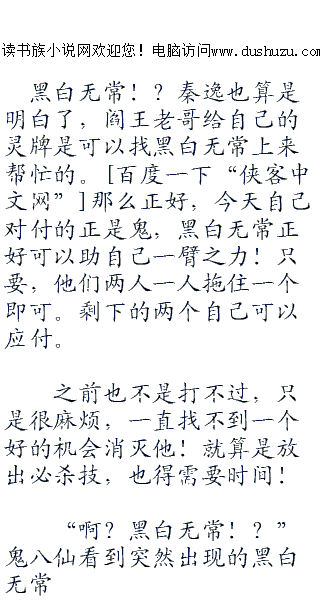 读书族小说网欢迎您！电脑访问www.dushuzu.com
黑白无常！？秦逸也算是
明白了，阎王老哥给自己的
灵牌是可以找黑白无常上来
帮忙的。[百度一下“侠客中
文网”]那么正好，今天自己
对付的正是鬼，黑白无常正
好可以助自己一臂之力！只
要，他们两人一人拖住一个
即可。剩下的两个自己可以
应付。
之前也不是打不过，只
是很麻烦，一直找不到一个
好的机会消灭他！就算是放
出必杀技，也得需要时间！
“啊？黑白无常！？”
鬼八仙看到突然出现的黑白
无常